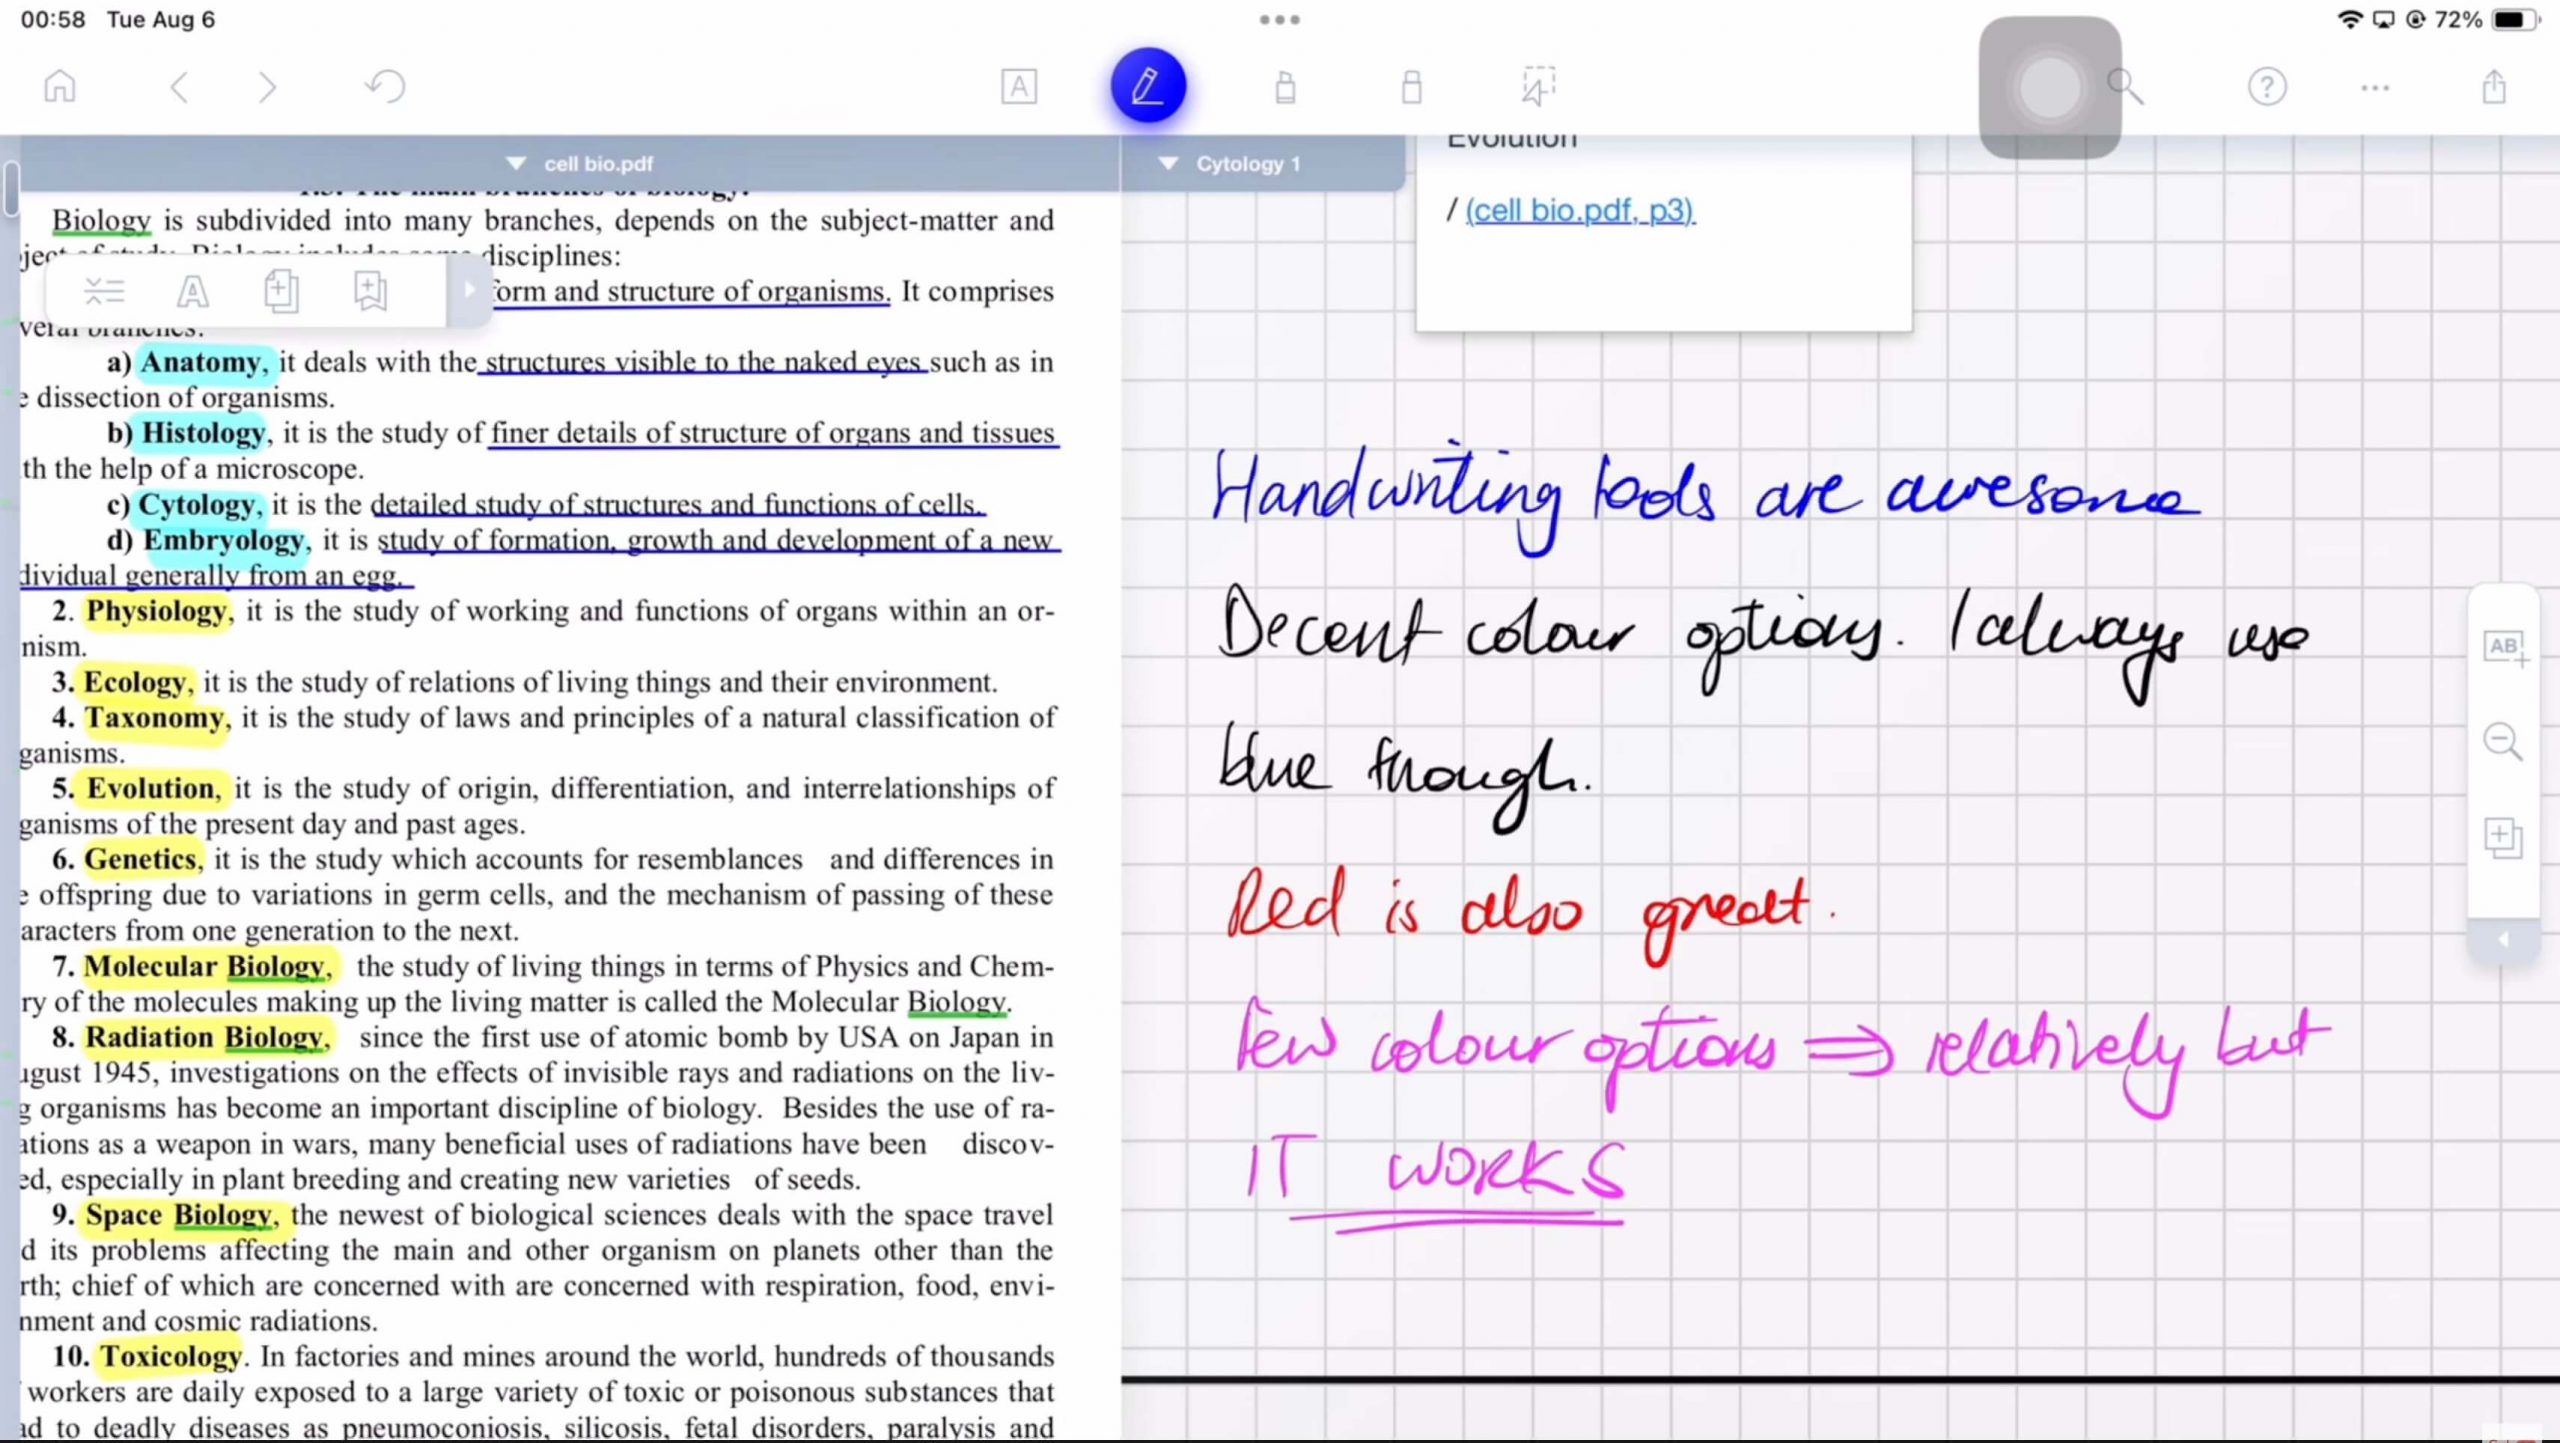 00:58 Tue Aug 6
72%
cell bio.pdf
Cytology 1
1.3. The main branches of biology.
Biology is subdivided into many branches, depends on the subject-matter and
disciplines:
form and structure of organisms. It comprises
veral branches:
a) Anatomy, it deals with the structures visible to the naked eyes such as in
e dissection of organisms.
b) Histology, it is the study of finer details of structure of organs and tissues
th the help of a microscope.
c) Cytology, it is the detailed study of structures and functions of cells.
d) Embryology, it is study of formation, growth and development of a new
dividual generally from an egg.
2. Physiology, it is the study of working and functions of organs within an or-
nism.
3. Ecology, it is the study of relations of living things and their environment.
4. Taxonomy, it is the study of laws and principles of a natural classification of
ganisms.
5. Evolution, it is the study of origin, differentiation, and interrelationships of
ganisms of the present day and past ages.
6. Genetics, it is the study which accounts for resemblances and differences in
e offspring due to variations in germ cells, and the mechanism of passing of these
aracters from one generation to the next.
7. Molecular Biology, the study of living things in terms of Physics and Chem-
ry of the molecules making up the living matter is called the Molecular Biology.
8. Radiation Biology, since the first use of atomic bomb by USA on Japan in
ugust 1945, investigations on the effects of invisible rays and radiations on the liv-
g organisms has become an important discipline of biology. Besides the use of ra-
ations as a weapon in wars, many beneficial uses of radiations have been discov-
ed, especially in plant breeding and creating new varieties of seeds.
9. Space Biology, the newest of biological sciences deals with the space travel
d its problems affecting the main and other organism on planets other than the
rth; chief of which are concerned with are concerned with respiration, food, envi-
nment and cosmic radiations.
10. Toxicology. In factories and mines around the world, hundreds of thousands
workers are daily exposed to a large variety of toxic or poisonous substances that
ad to deadly diseases as pneumoconiosis, silicosis, fetal disorders, paralysis and
Evolution
/ (cell bio.pdf, p3)
Handwriting tools are awesome
Decent colour options. I always use
blue though.
Red is also great.
Few colour options ⇒ relatively but
IT WORKS